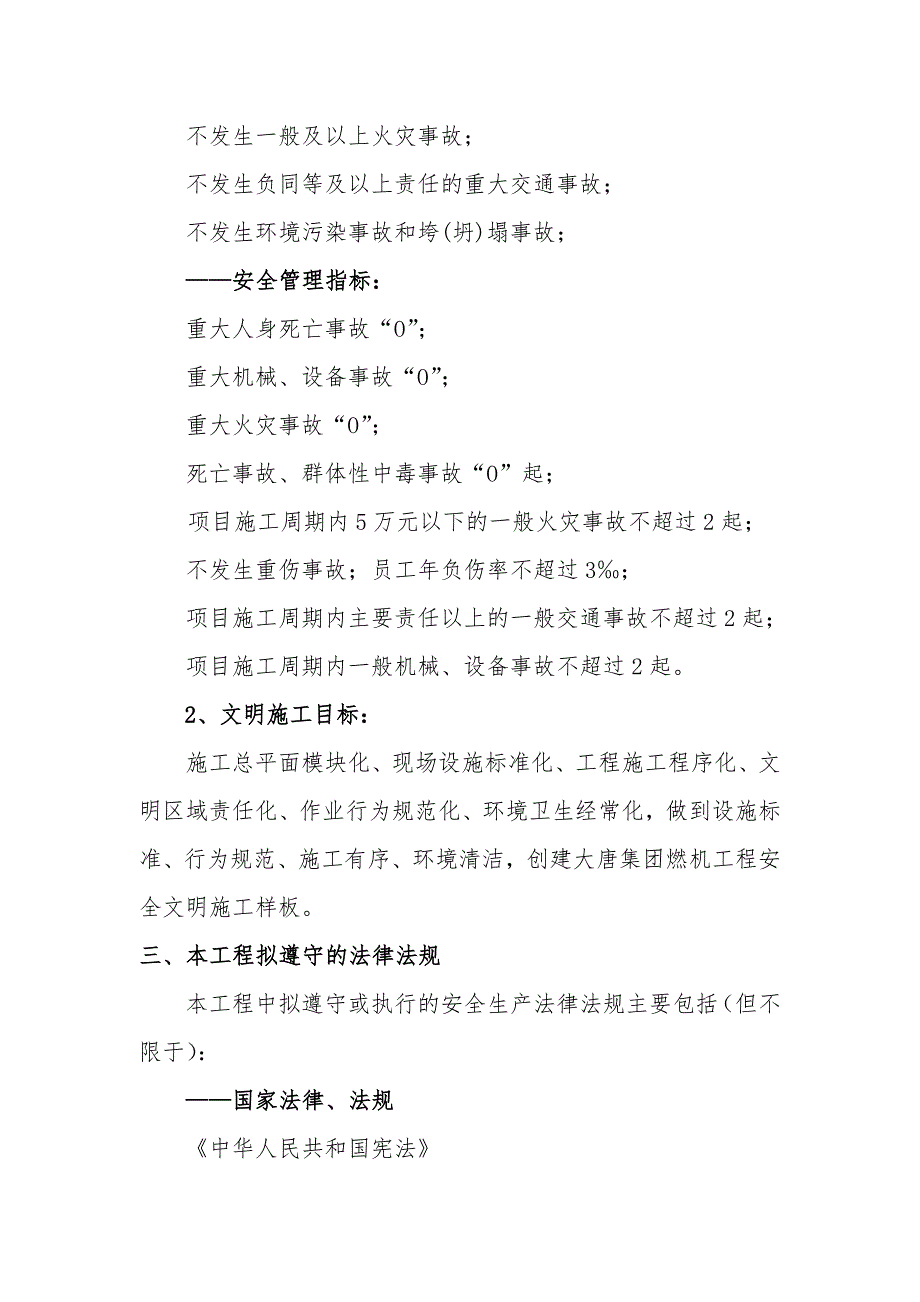 不发生一般及以上火灾事故；
不发生负同等及以上责任的重大交通事故；
不发生环境污染事故和垮(坍)塌事故；
——安全管理指标：
重大人身死亡事故“0”；
重大机械、设备事故“0”；
重大火灾事故“0”；
死亡事故、群体性中毒事故“0”起；
项目施工周期内5万元以下的一般火灾事故不超过2起；
不发生重伤事故；员工年负伤率不超过3‰；
项目施工周期内主要责任以上的一般交通事故不超过2起；
项目施工周期内一般机械、设备事故不超过2起。
2、文明施工目标：
施工总平面模块化、现场设施标准化、工程施工程序化、文
明区域责任化、作业行为规范化、环境卫生经常化，做到设施标
准、行为规范、施工有序、环境清洁，创建大唐集团燃机工程安
全文明施工样板。
三、本工程拟遵守的法律法规
本工程中拟遵守或执行的安全生产法律法规主要包括（但不
限于）：
——国家法律、法规
《中华人民共和国宪法》